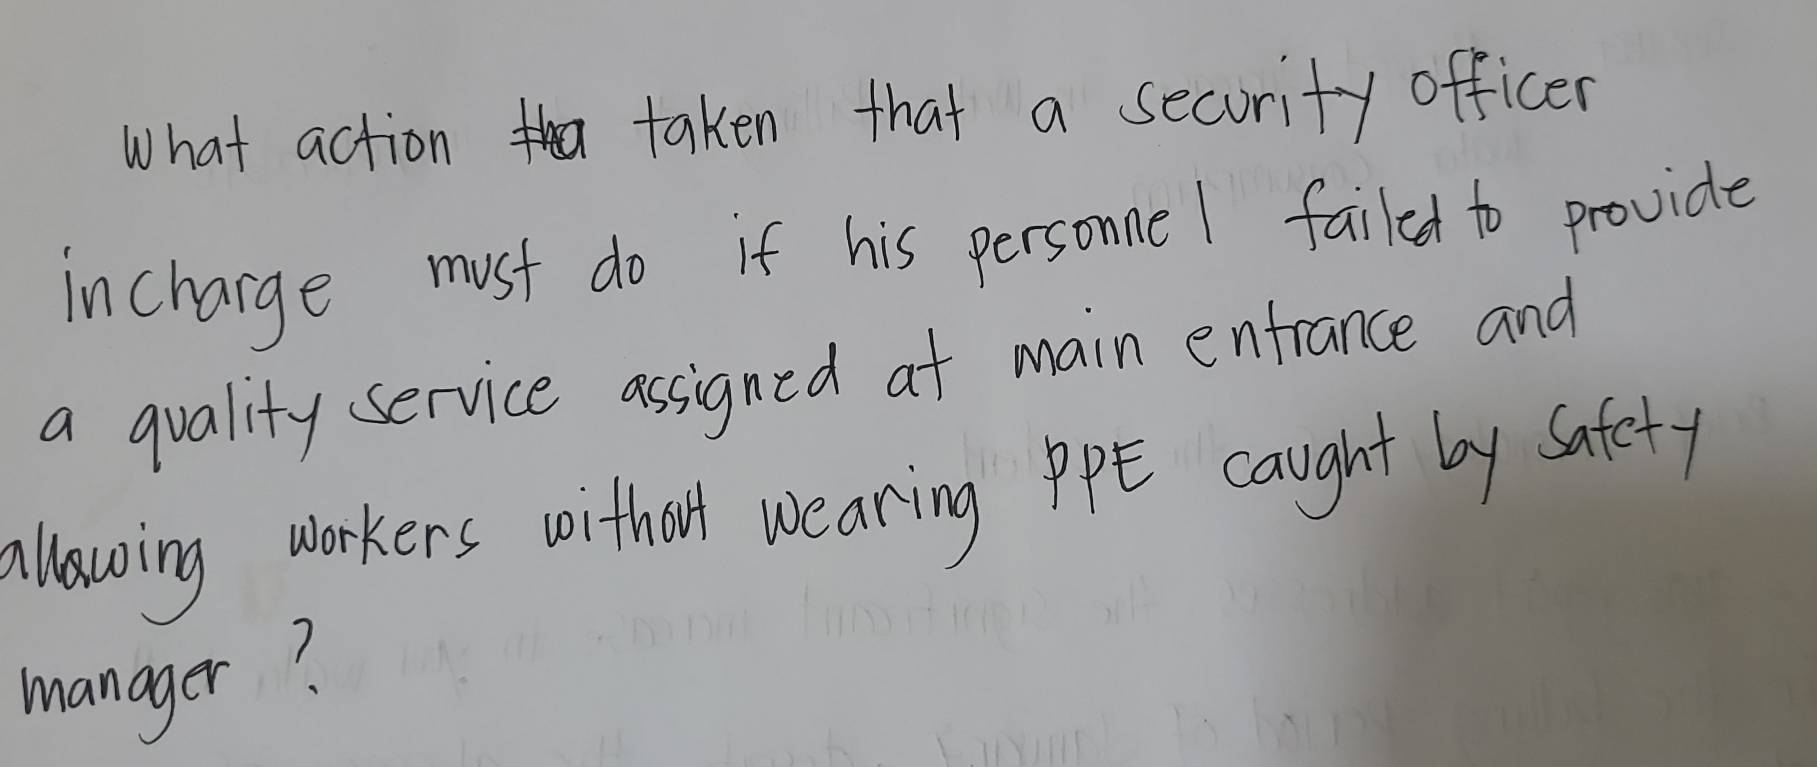 What action taken that a security officer
incharge must do if his personnel failed to provide
a quality service assigned at main entrance and
allowing workers without wearing PPE caught by Safety
manager?